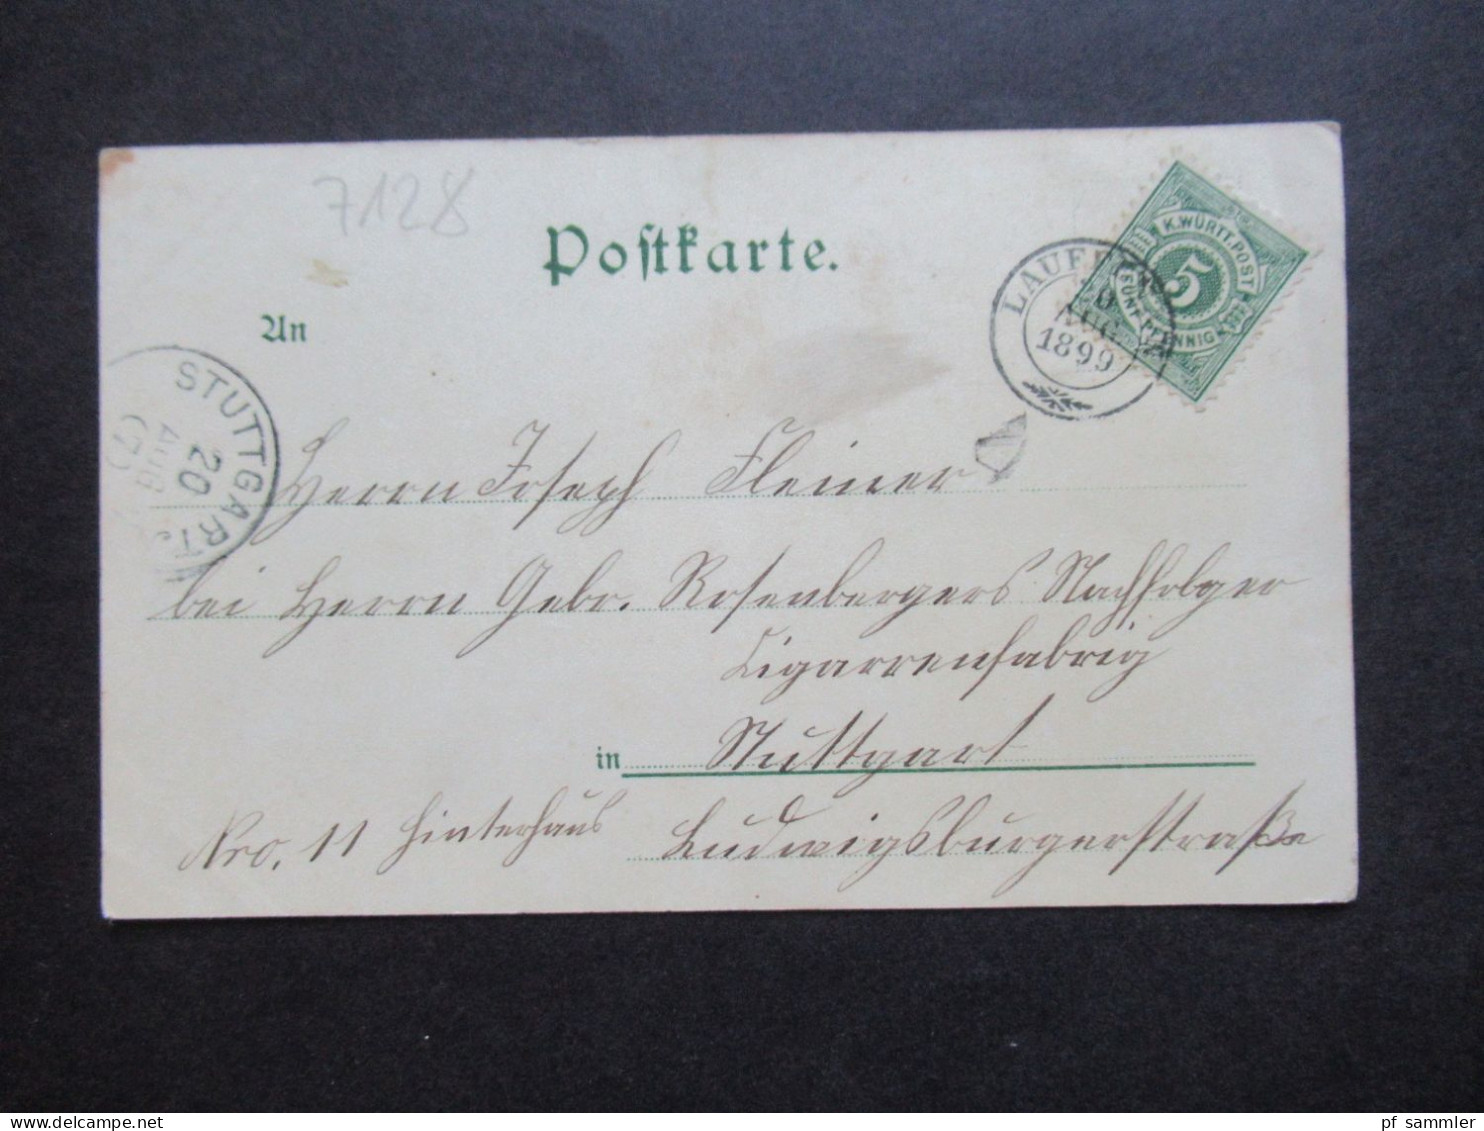 7128
Postkarte.
K. WÜRTT. POST
5
FÜNF PFENNIG
LAUFFEN
AUG
1899
An
STUTTGART
20
AUG
(7)
Herrn Joseph Fleiner
bei Herrn Gebr. Rosenbergers Nachfolger
Cigarrenfabrig
in Stuttgart
Nro. 11 Hinterhaus Ludwigsburgerstraße
pf sammler